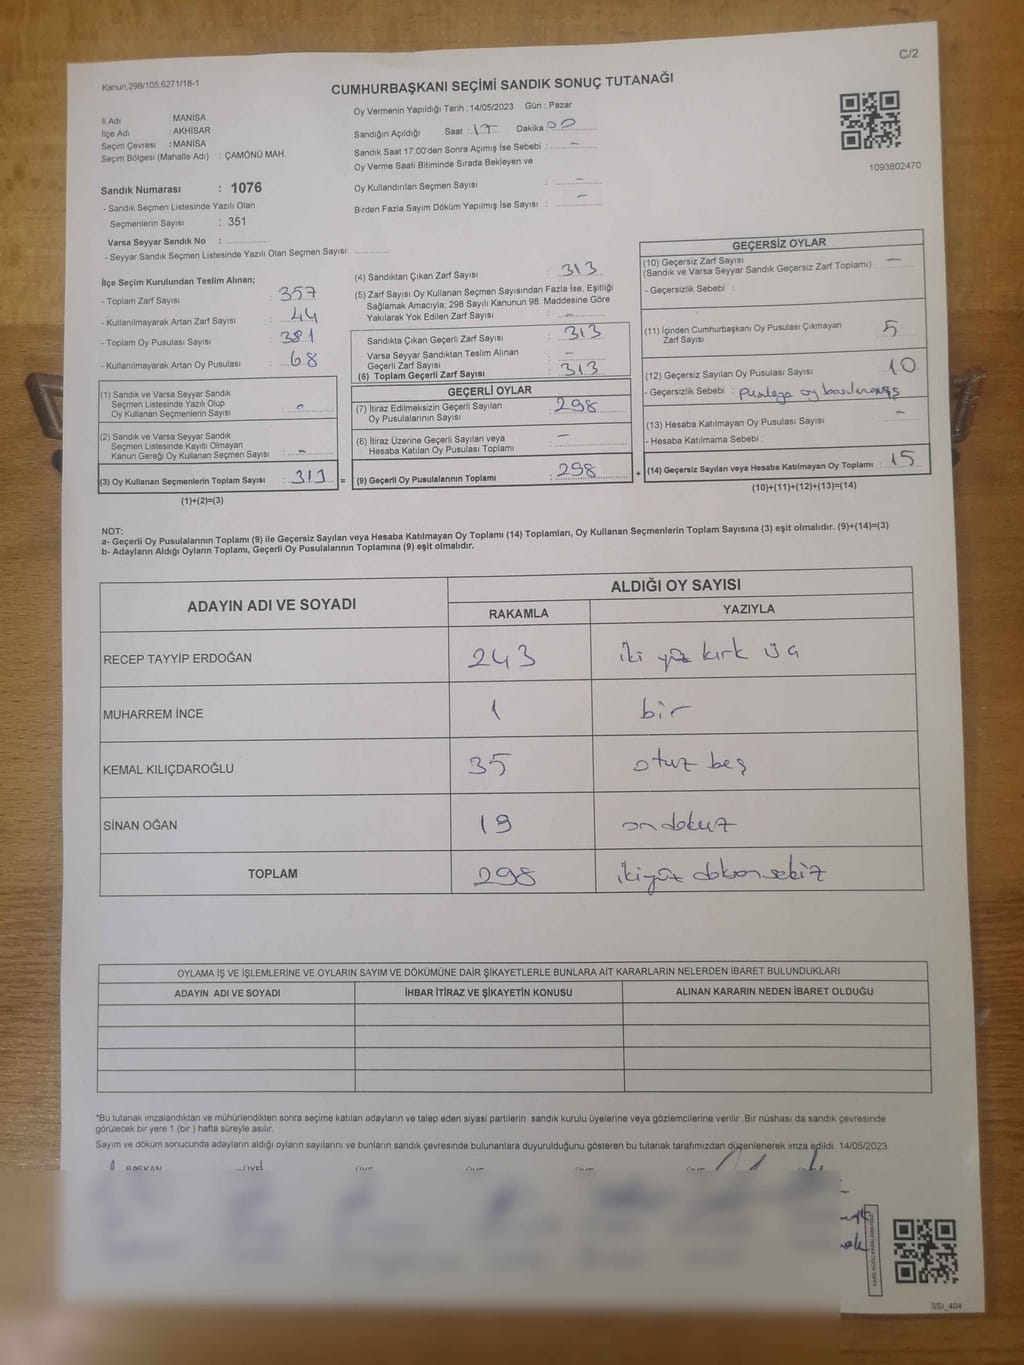 C/2
Kanun:298/105,6271/18-1
CUMHURBAŞKANI SEÇİMİ SANDIK SONUÇ TUTANAĞI
İl Adı : MANİSA
İlçe Adı : AKHİSAR
Seçim Çevresi : MANİSA
Seçim Bölgesi (Mahalle Adı) : ÇAMÖNÜ MAH.
Oy Vermenin Yapıldığı Tarih : 14/05/2023 Gün : Pazar
Sandığın Açıldığı Saat : 17 Dakika : 00
Sandık Saat 17:00'den Sonra Açımış İse Sebebi : -
Oy Verme Saati Bitiminde Sırada Bekleyen ve
Oy Kullandırılan Seçmen Sayısı : -
Birden Fazla Sayım Döküm Yapılmış İse Sayısı : -
1093802470
Sandık Numarası : 1076
- Sandık Seçmen Listesinde Yazılı Olan
Seçmenlerin Sayısı : 351
Varsa Seyyar Sandık No :
- Seyyar Sandık Seçmen Listesinde Yazılı Olan Seçmen Sayısı:
İlçe Seçim Kurulundan Teslim Alınan;
- Toplam Zarf Sayısı : 357
- Kullanılmayarak Artan Zarf Sayısı : 44
- Toplam Oy Pusulası Sayısı : 381
- Kullanılmayarak Artan Oy Pusulası : 68
(1) Sandık ve Varsa Seyyar Sandık
Seçmen Listesinde Yazılı Olup
Oy Kullanan Seçmenlerin Sayısı :
(2) Sandık ve Varsa Seyyar Sandık
Seçmen Listesinde Kayıtlı Olmayan
Kanun Gereği Oy Kullanan Seçmen Sayısı : -
(3) Oy Kullanan Seçmenlerin Toplam Sayısı : 313 =
(1)+(2)=(3)
(4) Sandıktan Çıkan Zarf Sayısı : 313
(5) Zarf Sayısı Oy Kullanan Seçmen Sayısından Fazla İse, Eşitliği
Sağlamak Amacıyla; 298 Sayılı Kanunun 98. Maddesine Göre
Yakılarak Yok Edilen Zarf Sayısı : -
Sandıkta Çıkan Geçerli Zarf Sayısı : 313
Varsa Seyyar Sandıktan Teslim Alınan
Geçerli Zarf Sayısı : -
(6) Toplam Geçerli Zarf Sayısı : 313
GEÇERLİ OYLAR
(7) İtiraz Edilmeksizin Geçerli Sayılan
Oy Pusulalarının Sayısı : 298
(8) İtiraz Üzerine Geçerli Sayılan veya
Hesaba Katılan Oy Pusulası Toplamı : -
(9) Geçerli Oy Pusulalarının Toplamı : 298 +
GEÇERSİZ OYLAR
(10) Geçersiz Zarf Sayısı
(Sandık ve Varsa Seyyar Sandık Geçersiz Zarf Toplamı) : -
- Geçersizlik Sebebi :
(11) İçinden Cumhurbaşkanı Oy Pusulası Çıkmayan
Zarf Sayısı : 5
(12) Geçersiz Sayılan Oy Pusulası Sayısı : 10
- Geçersizlik Sebebi : pusulaya oy basılmamış
(13) Hesaba Katılmayan Oy Pusulası Sayısı : -
- Hesaba Katılmama Sebebi :
(14) Geçersiz Sayılan veya Hesaba Katılmayan Oy Toplamı : 15
(10)+(11)+(12)+(13)=(14)
NOT:
a- Geçerli Oy Pusulalarının Toplamı (9) ile Geçersiz Sayılan veya Hesaba Katılmayan Oy Toplamı (14) Toplamları, Oy Kullanan Seçmenlerin Toplam Sayısına (3) eşit olmalıdır. (9)+(14)=(3)
b- Adayların Aldığı Oyların Toplamı, Geçerli Oy Pusulalarının Toplamına (9) eşit olmalıdır.
ADAYIN ADI VE SOYADI ALDIĞI OY SAYISI
RAKAMLA YAZIYLA
RECEP TAYYİP ERDOĞAN 243 iki yüz kırk üç
MUHARREM İNCE 1 bir
KEMAL KILIÇDAROĞLU 35 otuz beş
SİNAN OĞAN 19 on dokuz
TOPLAM 298 ikiyüz doksan sekiz
OYLAMA İŞ VE İŞLEMLERİNE VE OYLARIN SAYIM VE DÖKÜMÜNE DAİR ŞİKAYETLERLE BUNLARA AİT KARARLARIN NELERDEN İBARET BULUNDUKLARI
ADAYIN ADI VE SOYADI İHBAR İTİRAZ VE ŞİKAYETİN KONUSU ALINAN KARARIN NEDEN İBARET OLDUĞU
*Bu tutanak imzalandıktan ve mühürlendikten sonra seçime katılan adayların ve talep eden siyasi partilerin sandık kurulu üyelerine veya gözlemcilerine verilir. Bir nüshası da sandık çevresinde
görülecek bir yere 1 (bir ) hafta süreyle asılır.
Sayım ve döküm sonucunda adayların aldığı oyların sayılarını ve bunların sandık çevresinde bulunanlara duyurulduğunu gösteren bu tutanak tarafımızdan düzenlenerek imza edildi. 14/05/2023
BAŞKAN
SSI_404